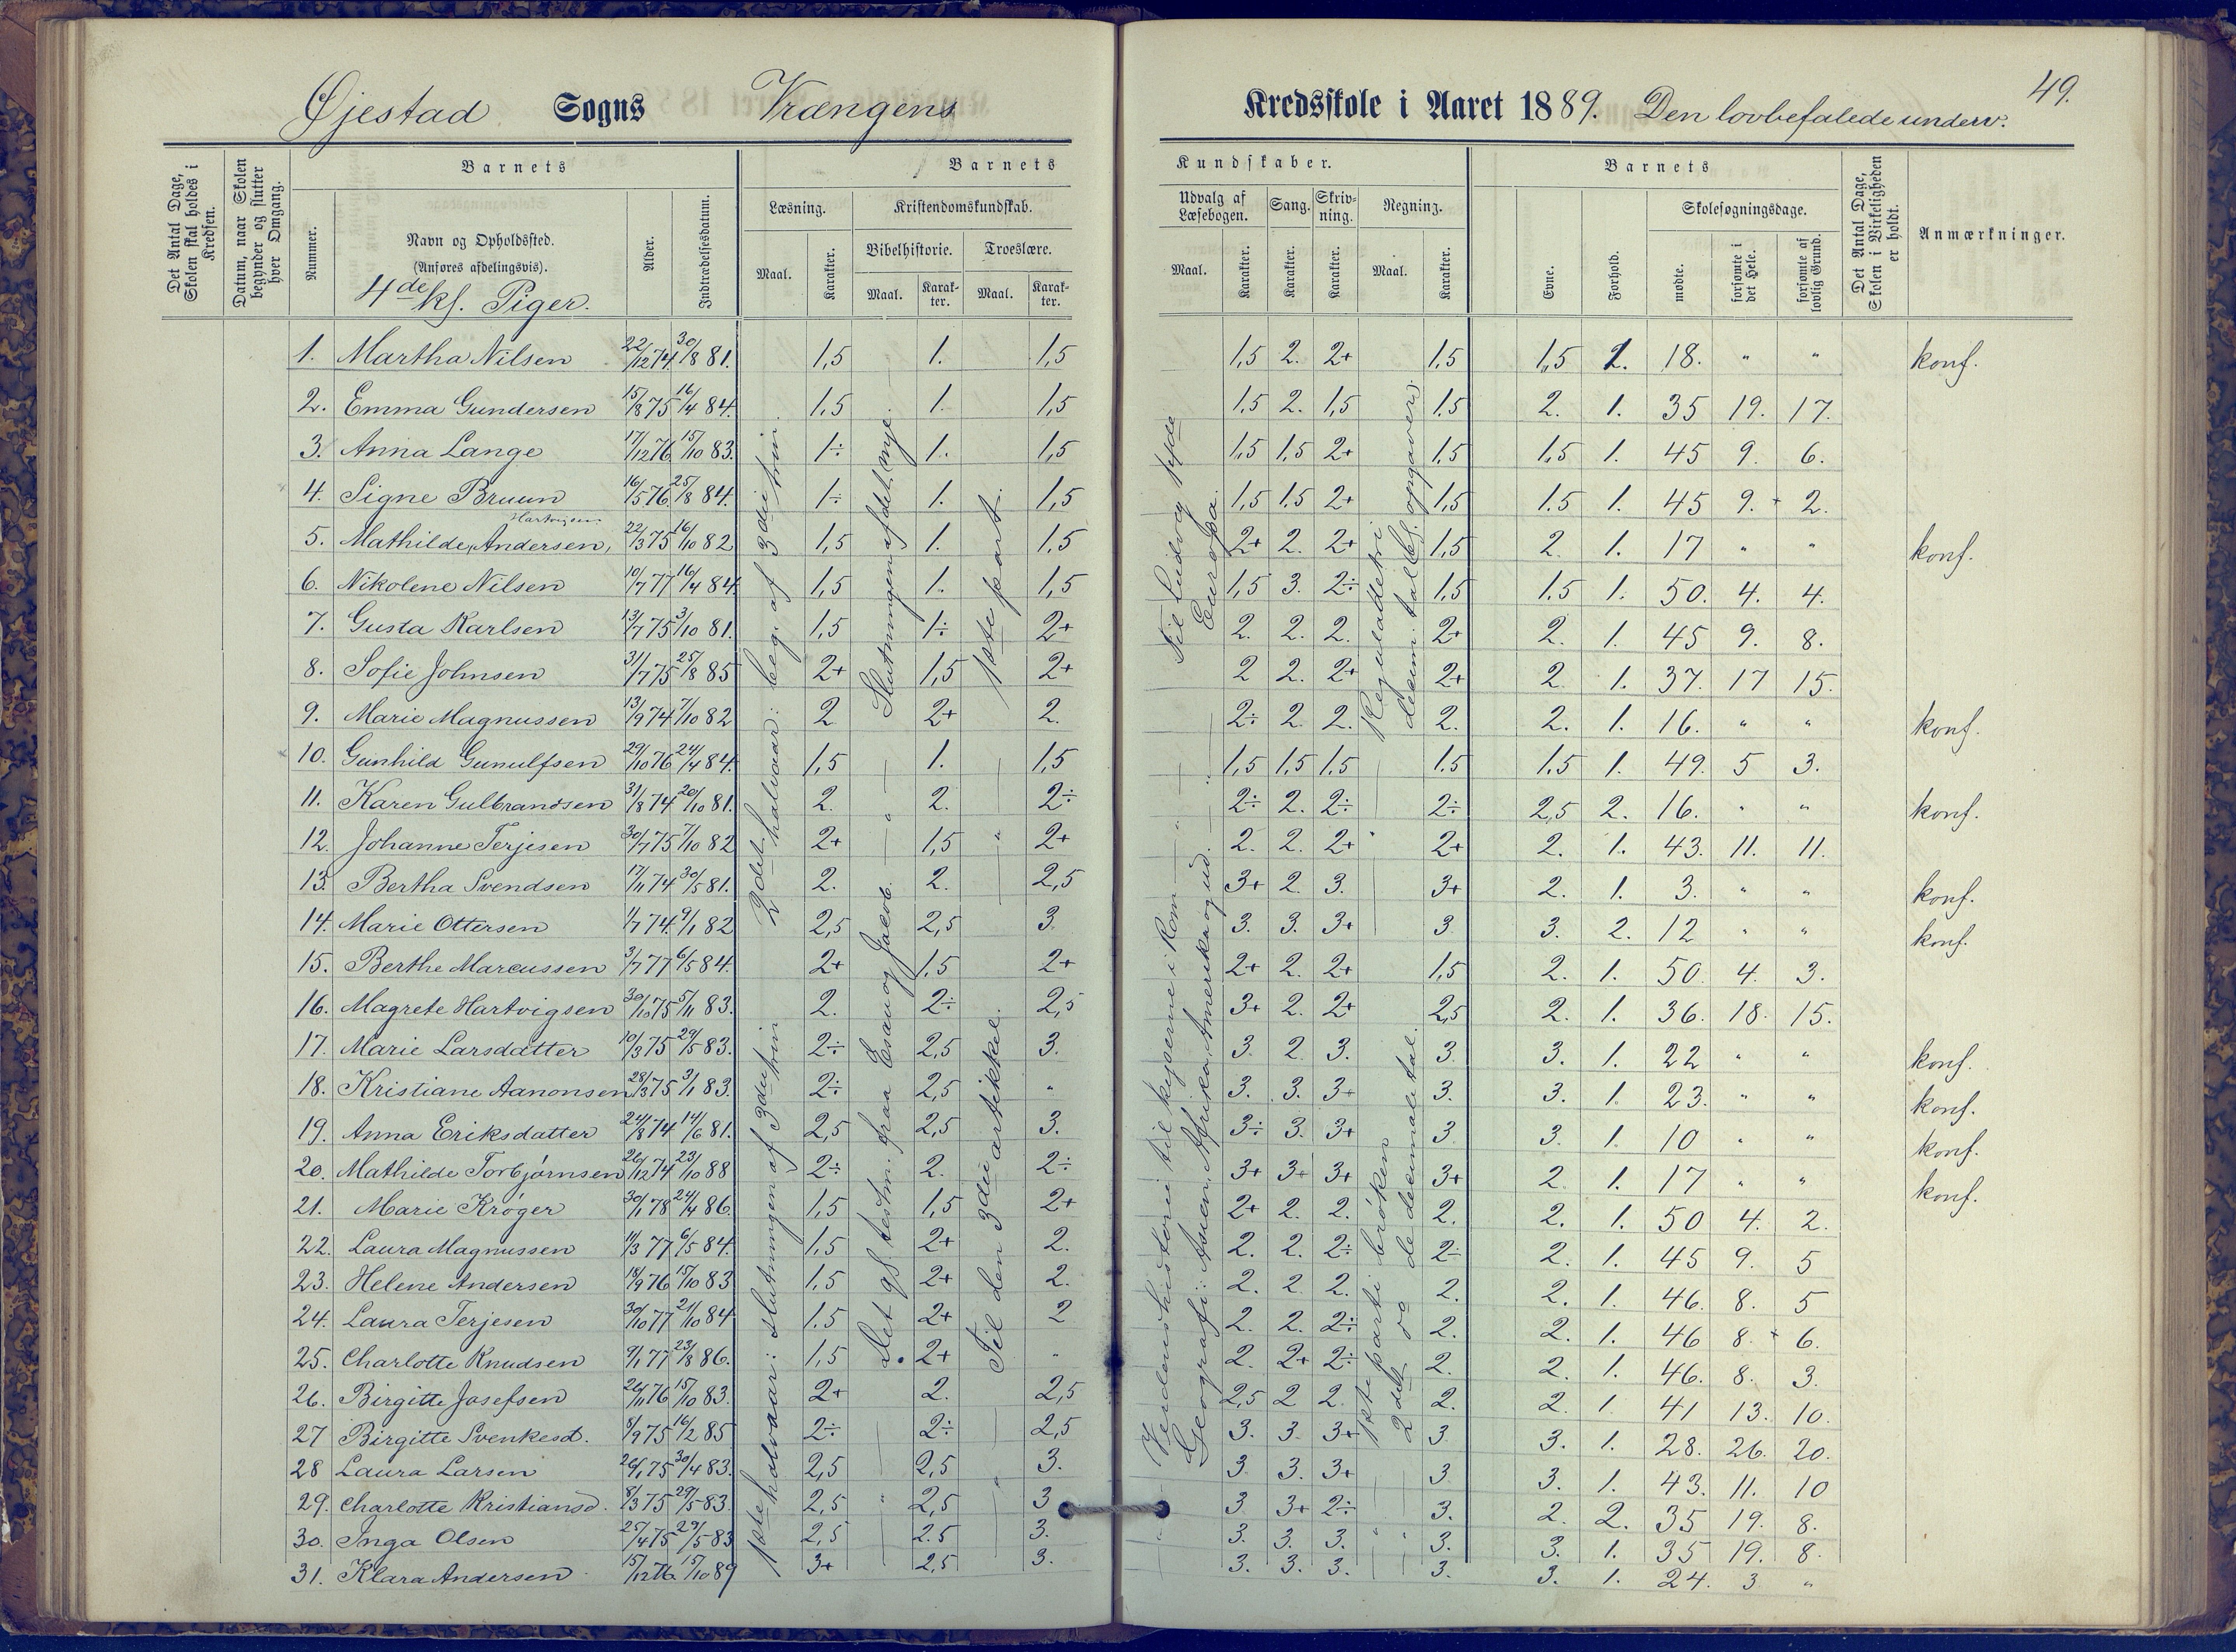 49.
Øjestad Sogns Vrængens Kredsskole i Aaret 1889. Den lovbefalede underv.
Det Antal Dage, Skolen skal holdes i Kredsen.
Datum, naar Skolen begynder og slutter hver Omgang.
Barnets
Nummer.
Navn og Opholdssted.
(Anføres afdelingsvis).
4de kl. Piger.
Alder.
Indtrædelsesdatum.
Barnets Kundskaber.
Læsning. Kristendomskundskab. Udvalg af Læsebogen. Sang. Skrivning. Regning.
Bibelhistorie. Troeslære.
Maal. Karakter. Maal. Karakter. Maal. Karakter. Maal. Karakter. Karakter. Karakter. Maal. Karakter.
Barnets
Evne. Forhold. Skolesøgningsdage.
mødte. forsømte i det Hele. forsømte af lovlig Grund.
Det Antal Dage, Skolen i Virkeligheden er holdt.
Anmærkninger.
1. Martha Nilsen 22/12 74. 30/8 81. 1,5 1. 1,5 1,5 2. 2+ 1,5 1,5 2. 18. " " konf.
2. Emma Gundersen 15/8 75 16/4 84. 1,5 1. 1,5 1,5 2. 1,5 1,5 2. 1. 35 19. 17.
3. Anna Lange 17/12 76 15/10 83. 1÷ 1. 1,5 1,5 1,5 2+ 1,5 1,5 1. 45 9. 6.
4. Signe Bruun 16/5 76. 25/8 84. 1÷ 1. 1,5 1,5 1,5 2+ 1,5 1.5 1. 45 9. 2.
5. Mathilde Hartvigsen Andersen, 22/3 75 16/10 82 1,5 1. 1,5 2+ 2. 2+ 1,5 2. 1. 17 " " konf.
6. Nikolene Nilsen 10/7 77 16/4 84 1,5 1. 1,5 1,5 3. 2÷ 1,5 1.5 1. 50. 4. 4.
7. Gusta Karlsen 13/7 75 3/10 81. 1,5 1÷ 2+ 2. 2. 2. 2+ 2. 1. 45 9. 8.
8. Sofie Johnsen 31/7 75 25/8 85 2+ 1,5 2+ 2 2. 2+ 2+ 2. 1. 37. 17 15.
9. Marie Magnussen 13/9 74 7/10 82 2. 2+ 2. 2÷ 2. 2. 2. 2. 1. 16. " " konf.
10. Gunhild Gunulfsen 29/10 76 24/4 84. 1,5 1. 1,5 1,5 1,5 1,5 1.5 1.5 1. 49. 5 3.
11. Karen Gulbrandsen 31/8 74 20/10 81. 2. 2. 2÷ 2÷ 2. 2÷ 2÷ 2,5 2. 16. " " konf.
12. Johanne Terjesen 30/7 75 7/10 82 2+ 1,5 2+ 2. 2. 2+ 2+ 2. 1. 43. 11. 11.
13. Bertha Svendsen 17/11 74 30/5 81. 2. 2. 2,5 3+ 2. 3. 3+ 2. 1. 3. " " konf.
14. Marie Ottersen 1/7 74. 9/1 82 2,5 2,5 3. 3. 3. 3+ 3 3. 2. 12 " " konf.
15. Berthe Marcussen 3/7 77 6/5 84. 2+ 1,5 2+ 2+ 2. 2+ 1,5 2. 1. 50. 4 3.
16. Magrete Hartvigsen 30/10 75 5/11 83. 2. 2÷ 2,5 3+ 2. 2+ 2,5 2. 1. 36. 18. 15.
17. Marie Larsdatter 10/3 75 29/5 83. 2÷ 2,5 3. 3. 2. 3. 3. 3. 1. 22 " " konf.
18. Kristiane Aanonsen 28/3 75 3/1 83. 2÷ 2,5 " 3. 3. 3+ 3. 3. 1. 23. " " konf.
19. Anna Eriksdatter 24/8 74 14/6 81. 2,5 2,5 3. 3÷ 3. 3+ 3. 3. 1. 10 " " konf.
20. Mathilde Torbjørnsen 26/12 74 23/10 88 2÷ 2. 2÷ 3+ 3+ 3+ 3+ 2. 1. 17 " " konf.
21. Marie Krøger 30/1 78 24/4 86. 1,5 1,5 2+ 2+ 2. 2. 2. 2. 1. 50 4. 2.
22. Laura Magnussen 11/3 77 6/5 84. 1,5 2+ 2. 2. 2. 2÷ 2÷ 2. 1. 45 9. 5
23. Helene Andersen 18/9 76 15/10 83 1,5 2+ 2. 2. 2. 2. 2. 2. 1. 46. 8. 5
24. Laura Terjesen 30/10 77 21/10 84 1.5 2+ 2 2. 2. 2÷ 2. 2. 1. 46 8. 6.
25. Charlotte Knudsen 9/1 77 23/8 86. 1,5 2+ " 2. 2+ 2÷ 2. 2. 1. 46. 8. 3.
26. Birgitte Josefsen 26/11 76 15/10 83. 2+ 2. 2,5 2,5 2 2. 2. 2. 1. 41 13. 10.
27 Birgitte Svenkesd. 8/9 75 16/2 85 2÷ 2÷ 2,5 3. 3. 3+ 3 3. 1. 28. 26. 20.
28 Laura Larsen 26/1 75 30/4 83. 2,5 2,5 3. 3 3. 3+ 3 3. 1. 43. 11. 10
29. Charlotte Kristiansd. 8/3 75 29/5 83. 2,5 2,5 3 3 3+ 2÷ 3. 2. 2. 35 19. 8.
30. Inga Olsen 25/4 75 29/5 83 2,5 2.5 3. 3. 3. 3. 3. 3. 1. 35 19. 8.
31. Klara Andersen 15/12 76. 15/10 89 3+ 2,5 3. 3. 3. 3. 3. 3. 1. 24. 3 "
1ste halvaar: slutningen af 3die trin
2det halvaar: beg. af 3die trin
Det gl. testm. fraa Esau og Jacob.
Slutningen af det nye
Til den 3die artikkel.
1ste part.
Verdenshistorie til keiserne i Rom Til Ludvig
Geografi: Asien, Afrika, Amerika og Europa.
1ste parti brøken
2det do decimaltal.
Reguladetri
decimaltal opgaver